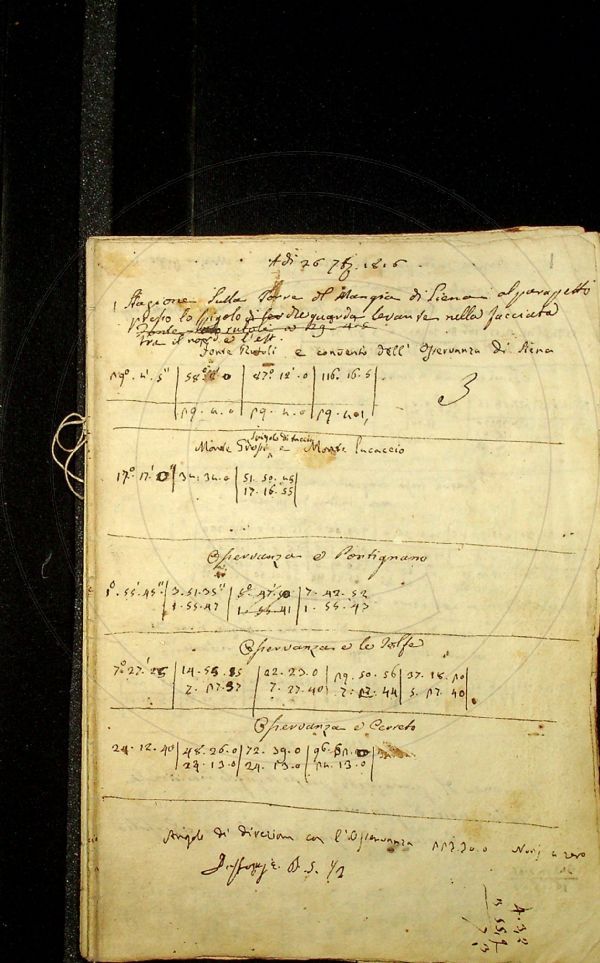 Adi 26 7b. 1816
1 Stazione sulla Torre del Mangia di Siena al parapetto
presso lo spigolo che riguarda levante nella facciata
tra il nord e l'est.
Fonte Rutoli e convento dell'Osservanza di Siena
29°. 4'. 5" | 58° 8' 0 | 87° 12'. 0 | 116. 16. 5
29. 4. 0 | 29. 4. 0 | 29. 4. 1
3
Monte Gropi e Monte Lucaccio
17°. 17'. 0" | 34. 34. 0 | 51. 50. 45
17. 16. 55
Osservanza e Pontignano
1°. 55'. 45" | 3. 51. 35" | 5°. 47'. 50 | 7. 42. 52
1. 55. 47 | 1. 55. 41 | 1. 55. 43
Osservanza e le Tolfe
7° 27' 25 | 14. 55. 35 | 22. 23. 0 | 29. 50. 56 | 37. 18. 20
7. 27. 37 | 7. 27. 40 | 7. 27. 44 | 5. 27. 40
Osservanza e Cerreto
24. 12. 40 | 48. 26. 0 | 72. 39. 0 | 96. 52.
24. 13. 0 | 24. 13. 0 | 24. 13. 0
Angolo di direzione con l'Osservanza 113.30.0 Nonj a zero